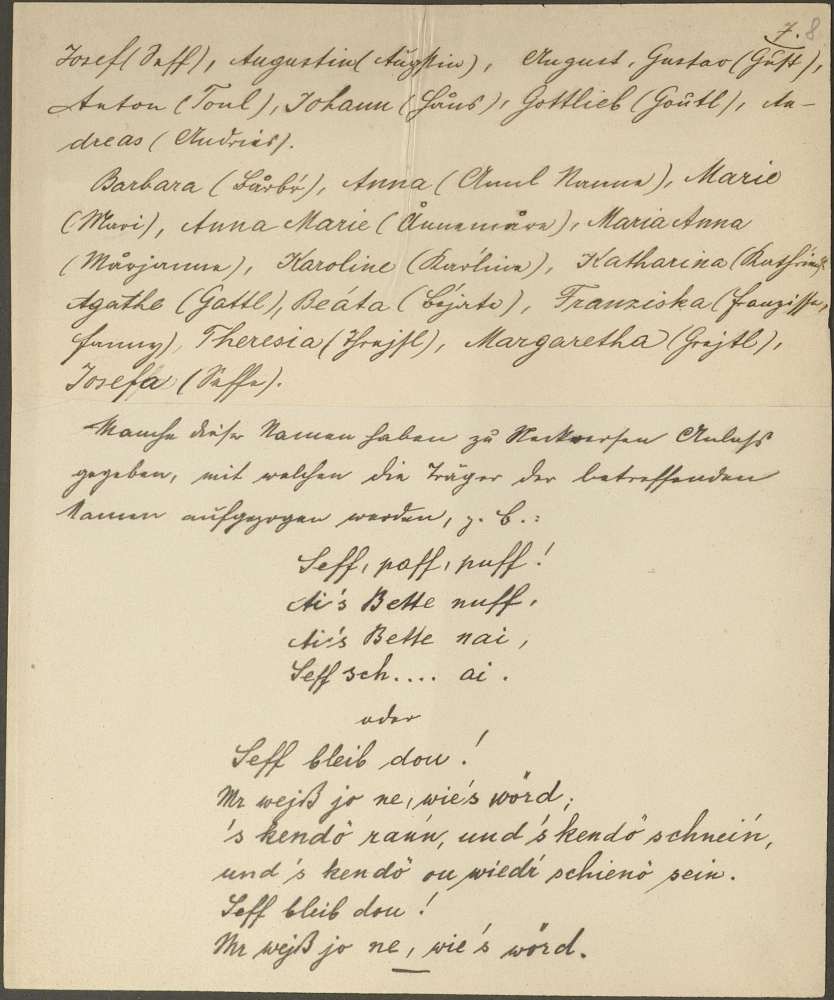 7. 8
Josef (Seff), Augustin (Augstin), August, Gustav (Gust),
Anton (Tonl), Johann (Håns), Gottlieb (Goutl), An-
dreas (Andries).
Barbara (Bårbr), Anna (Annl Nanne), Marie
(Mari), Anna Marie (Ånnemåre), Maria Anna
(Mårjanne), Karoline (Karline), Katharina
Agathe (Gattl), Beáta (Bejate), Franziska (Franziske,
Fanny), Theresia (Threjsl), Margaretha (Grejtl),
Josefa (Seffe).
Manche dieser Namen haben zu Neckversen Anlass
gegeben, mit welchen die Träger der betreffenden
Namen aufgezogen werden, z. B.:
Seff, paff, puff!
Ai's Bette nuff,
Ai's Bette nai,
Seff sch.... ai.
oder
Seff bleib dou!
Mr wejß jo ne, wie's wörd;
's kendö raun, und 's kendö schnein,
und 's kendö ou wiedr schienö sein.
Seff bleib dou!
Mr wejß jo ne, wie's wörd.